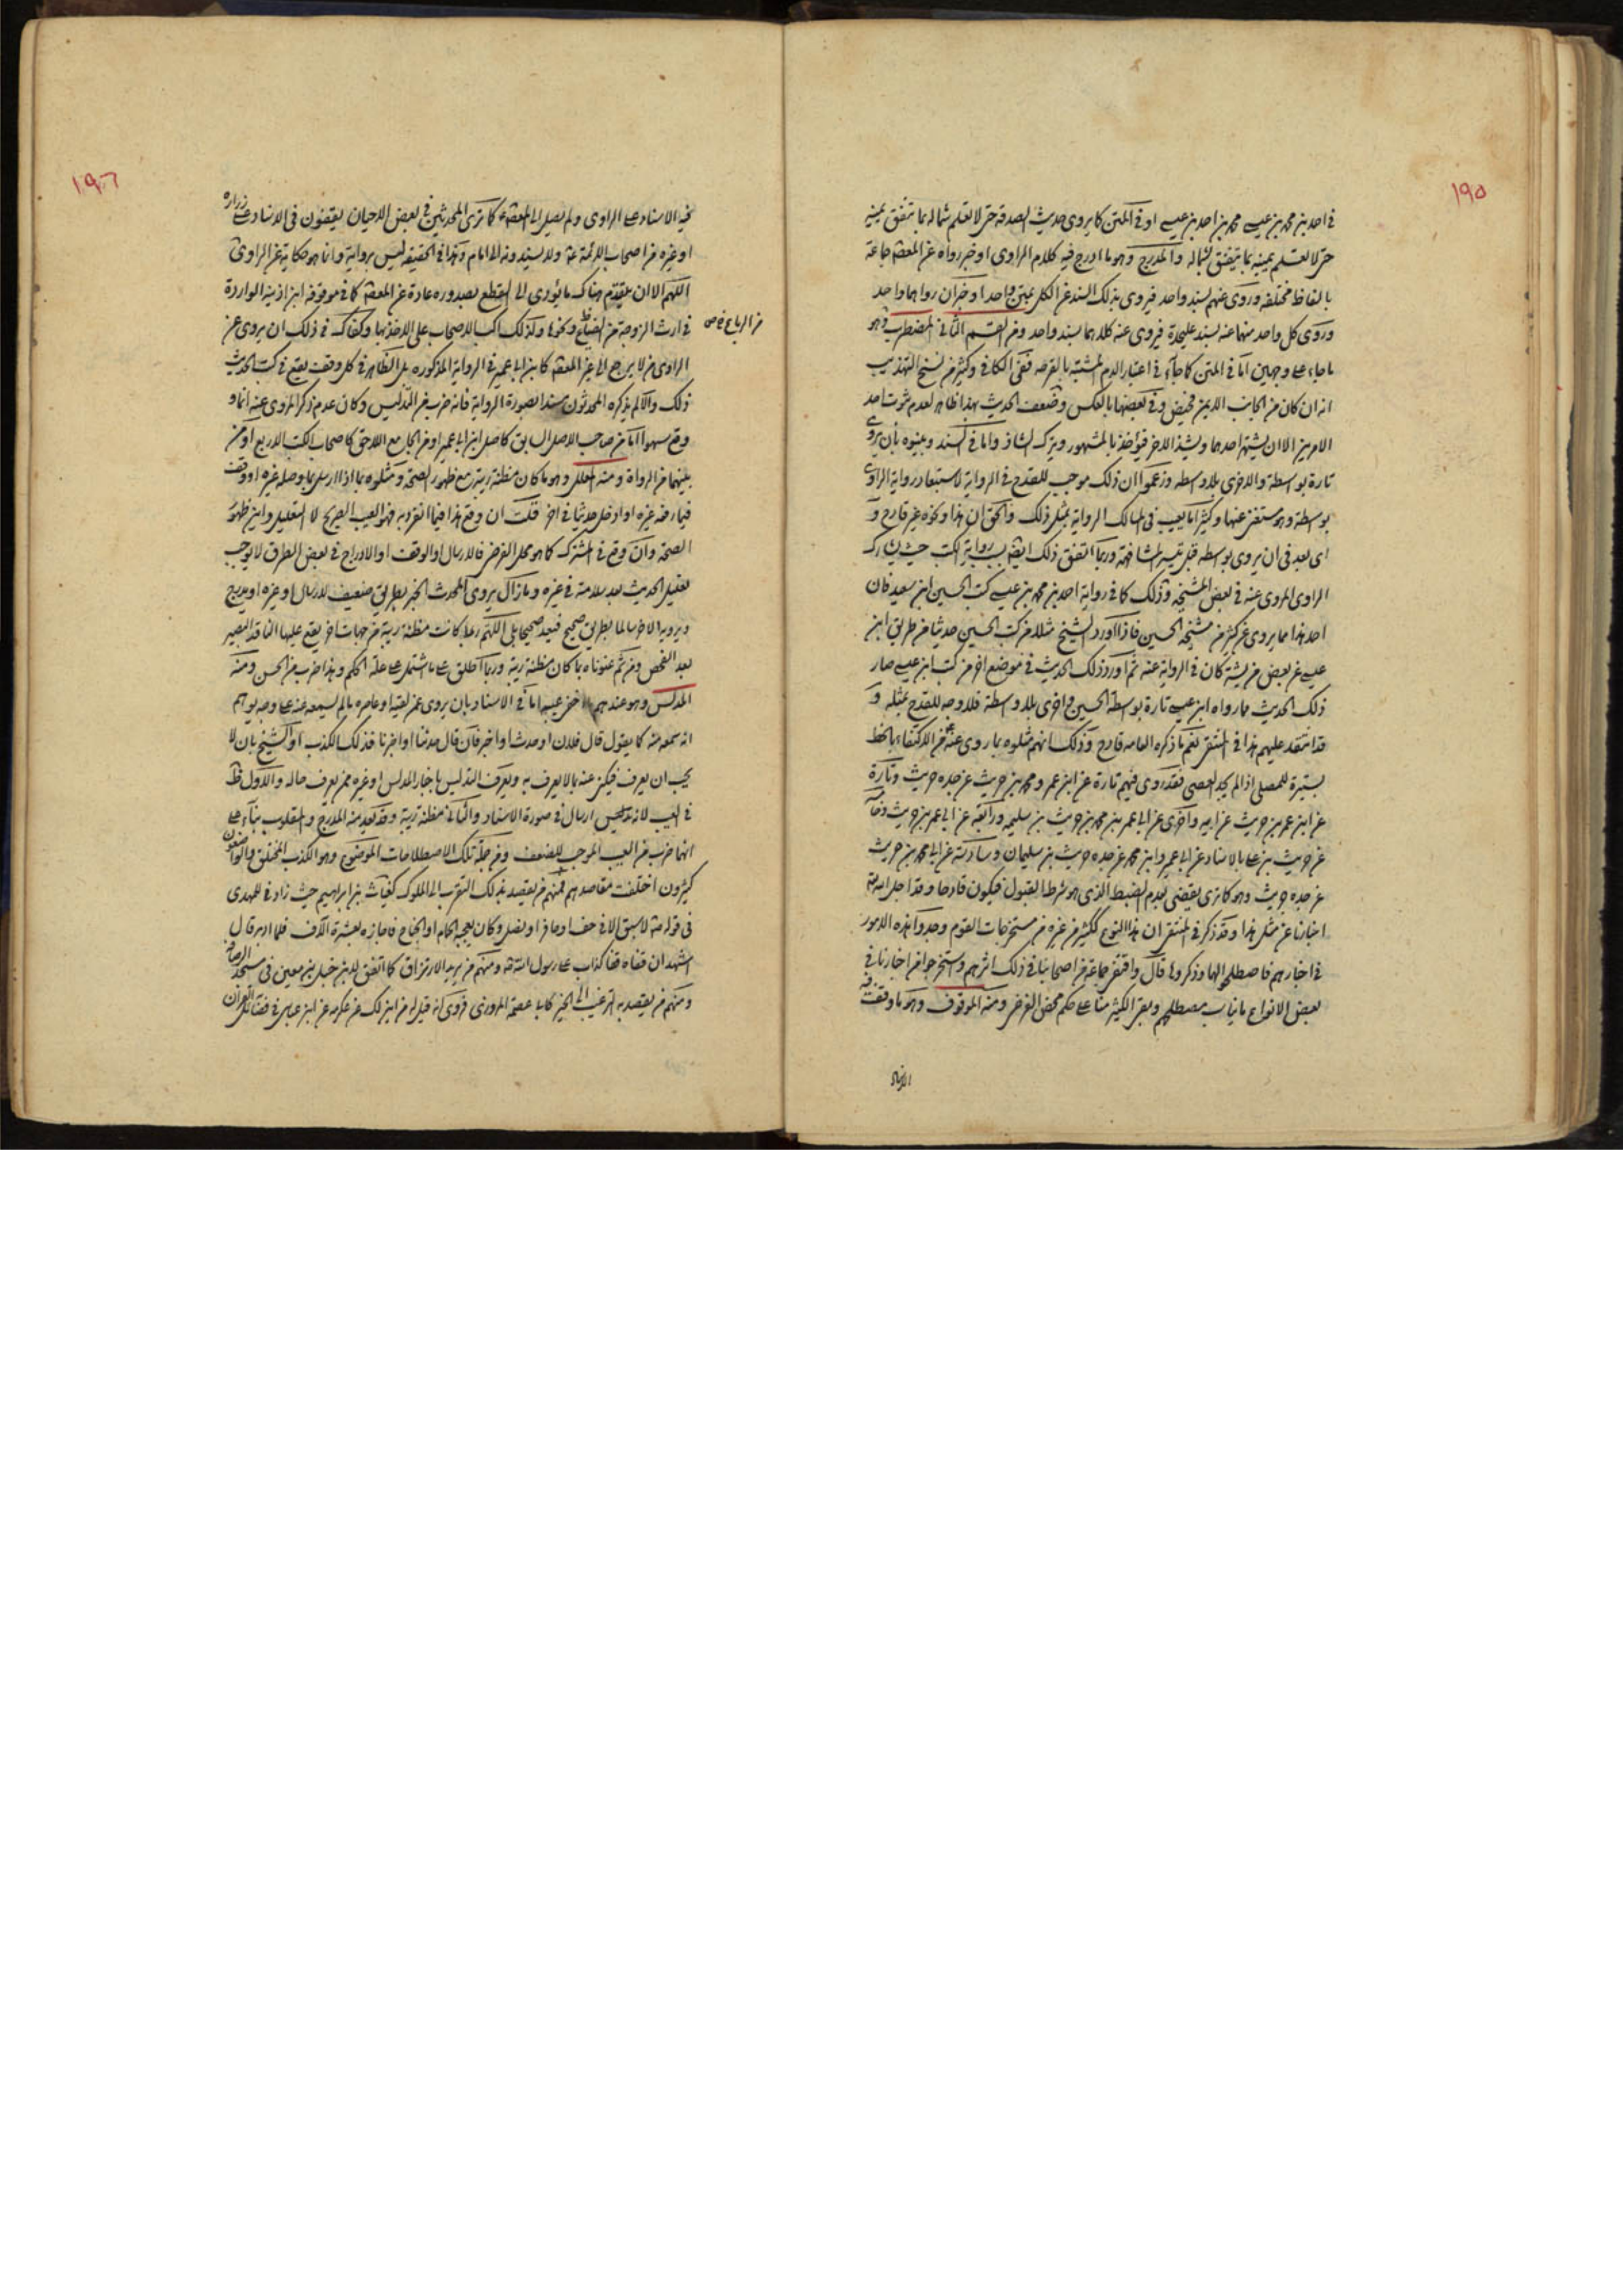 ١٩٥
في احمد بن محمد بن عيسى محمد بن احمد بن عيسى او في المتن كما يروى حديث الصدقة حتى لا تعلم شماله بما تنفق يمينه
حتى لا تعلم يمينه بما تنفق شماله والمدرج وهو ما ادرج فيه كلام الراوى او خبر رواه عن المعصوم جماعة
بالفاظ مختلفة وروى عنهم بسند واحد فيروى بذلك السند عن الكل بمتن واحد او خبران رواهما واحد
وروى كل واحد منهما عنه بسند عليحدة فيروى عنه كلاهما بسند واحد ومن القسم الثاني المضطرب وهو
ما جاء على وجهين اما في المتن كما جاء في اعتبار الدم المشتبه بالقرحه ففى الكافي وكثير من نسخ التهذيب
انه ان كان من الجانب الايمن فحيض وفي بعضها بالعكس وضعف الحديث بهذا ظاهر لعدم ثبوت احد
الامرين الا ان يشتهر احدهما ويشذ الاخر فيؤخذ بالمشهور ويترك الشاذ واما في السند وبينوه بان يروى
تارة بواسطة والاخرى بلا واسطه وزعموا ان ذلك موجب للقدح في الرواية لاستبعاد رواية الراوى
بواسطة وهو مستغن عنها وكثيرا ما يعيب في المسالك الرواية بمثل ذلك والحق ان هذا ونحوه غير قادح و
اى بعد في ان يروى بواسطه قبل تيسر المشافهة وربما اتفق ذلك ايضا بسبب رواية الكتب حيث يشارك
الراوى المروى عنه في بعض المشيخه وذلك كما في رواية احمد بن محمد بن عيسى كتب الحسين ابن سعيد فان
احمد هذا مما يروى عن كثير من مشيخة الحسين فاذا اورد الشيخ مثلا من كتب الحسين حديثا من طريق ابن
عيسى عن بعض من يشتركان في الرواية عنه ثم اورد ذلك الحديث في موضع اخر من كتب ابن عيسى صار
ذلك الحديث مما رواه ابن عيسى تارة بواسطة الحسين واخرى بلا واسطة فلا وجه للقدح بمثله و
قد انتقد عليهم هذا في المنتقى نعم ما ذكره العامه قادح وذلك انهم مثلوه بما روى عنه من الاكتفاء بالخط
بسترة للمصلى اذا لم يجد العصى فقد روى فيهم تارة عن ابن عمرو محمد بن حريث عن جده حريث وتارة
عن ابن عمرو بن حريث عن ابيه واخرى عن ابي عمر بن محمد بن حريث بن سليم ورابعة عن ابي عمرو بن حريث وخامسة
عن حريث بن على بالاسناد عن ابي عمرو ابن محمد عن جده حريث بن سليمان وسادسة عن ابي محمد بن حريث
عن جده حريث وهو كما ترى يقتضى بعدم الضبط الذى هو شرط القبول فيكون قادحا وقد اجل الله تعالى
اخبارنا عن مثل هذا وقد ذكر في المنتقى ان هذا النوع ككثير من غيره من مستخرجات القوم وجدوا هذه الامور
في اخبارهم فاصطلحوا لها وذكروها قال واقتفى جماعة من اصحابنا في ذلك اثرهم واستخرجوا من اخبارنا في
بعض الانواع ما يناسب مصطلحهم وبقى الكثير منها على حكم محض الفرض ومنه الموقوف وهو ما وقفت فيه
١٩٦
فيه الاسناد على الراوى ولم يصل الى المعصوم كما ترى المحدثين في بعض الاحيان يقفون في الاسناد على زراره
او غيره من اصحاب الائمة ولا يسندونه الى الامام وهذا في الحقيقة ليس برواية وانما هو حكاية عن الراوى
اللهم الا ان يتقدم هناك ما يؤدى الى القطع بصدوره عادة عن المعصوم كما في موقوفه ابن اذينه الواردة
في ارث الزوجة من الضياع ونحوها ولذلك اكب الاصحاب على الاخذ بها وكفاك في ذلك ان يروى عن
من الرباع
الراوى من لا يرجع الى غير المعصوم كابن ابي عمير في الرواية المذكوره بل الظاهر في كل وقف يقع في كتب الحديث
ذلك والا لم يذكره المحدثون مسندا بصورة الرواية فانه ضرب من التدليس وكان عدم ذكر المروى عنه انما و
وقع سهوا اما من صاحب الاصل السابق كاصل ابن ابي عمير او من الجامع اللاحق كاصحاب الكتب الاربع او من
بينهما من الرواة ومنه المعلل وهو ما كان مظنة ريبة مع ظهور الصحة ومثلوه بما اذا ارسل ما وصله غيره او وقف
فيما رفعه غيره او ادخل حديثا في اخر قلت ان وقع هذا فيما انفرد به فهو العيب الصريح لا التعليل واين ظهور
الصحة وان وقع في المشترك كما هو محل الفرض فالارسال او الوقف او الادراج في بعض الطرق لا يوجب
تعليل الحديث بعد سلامته في غيره وما زال يروى المحدث الخبر بطريق ضعيف لارسال او غيره او يدرج
ويرويه الاخر سالما بطريق صحيح فيعد صحيحا بلى اللهم ربما كانت مظنة ريبة من جهات اخر يقع عليها الناقد البصير
بعد الفحص ومن ثم عنوناه بما كان مظنة ريبة وربما اطلق على ما اشتمل على علة الحكم وهذا ضرب من الحسن ومنه
المدلس وهو عندهم ما اخفى عيبه اما في الاسناد بان يروى عمن لقيه او عاصره ما لم يسمعه عنه على وجه يوهم
انه سمعه منه كما يقول قال فلان او حدث او اخبر فان قال حدثنا او اخبرنا فذلك الكذب او الشيخ بان لا
يحب ان يعرف فيكنى عنه بما لا يعرف به ويعرف التدليس باخبار المدلس او غيره ممن يعرف حاله والاول ظاهر
في العيب لانه تدليس ارسال في صورة الاسناد والثاني مظنة ريبة وقد يعد منه المدرج والمقلوب بناء على
انهما ضرب من العيب الموجب للضعف ومن جملة تلك الاصطلاحات الموضوع وهو الكذب المختلق والواضعون
كثيرون اختلفت مقاصدهم فمنهم من يقصد بذلك التقرب الى الملوك كغياث بن ابراهيم حيث زاد في للمهدى
في قوله لا سبق الا في خف او حافر او نصل وكان يعجبه الحمام او الجناح فاجازه بعشرة آلاف فلما ادبر قال
اشهد ان قفاه قفا كذاب على رسول الله ومنهم من يريد الارتزاق كما اتفق لابن حنبل وابن معين في مسجد الرصافة
ومنهم من يقصد به الترغيب الى الخير كابي عصمة المروزى فروى انه قيل له من اين لك عن عكرمه عن ابن عباس في فضائل القران